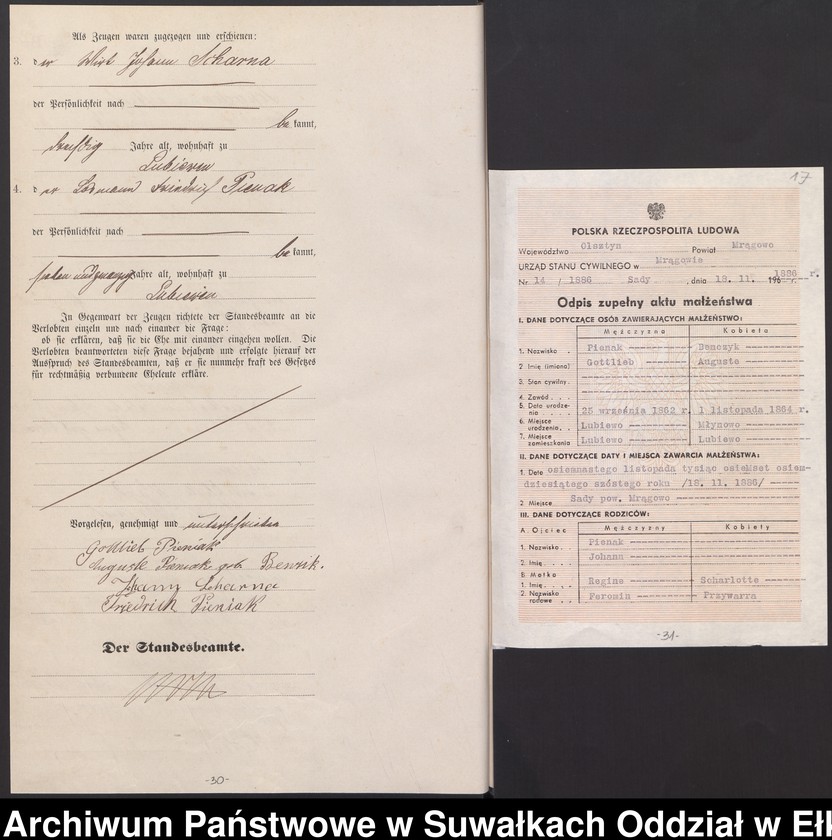 Als Zeugen waren zugezogen und erschienen:
3. der Wirt Johann Scharna
der Persönlichkeit nach
bekannt,
dreißig Jahre alt, wohnhaft zu
Lubiewen
4. der Losmann Friedrich Pienak
der Persönlichkeit nach
bekannt,
sieben undzwanzig Jahre alt, wohnhaft zu
Lubiewen
In Gegenwart der Zeugen richtete der Standesbeamte an die
Verlobten einzeln und nach einander die Frage:
ob sie erklären, daß sie die Ehe mit einander eingehen wollen. Die
Verlobten beantworteten diese Frage bejahend und erfolgte hierauf der
Ausspruch des Standesbeamten, daß er sie nunmehr kraft des Gesetzes
für rechtmäßig verbundene Eheleute erkläre.
Vorgelesen, genehmigt und unterschrieben
Gottlieb Pieniak
Auguste Pieniak geb. Benzik.
Johann Scharna
Friedrich Pieniak
Der Standesbeamte.
-30-
17
POLSKA RZECZPOSPOLITA LUDOWA
Województwo Olsztyn Powiat Mrągowo
URZĄD STANU CYWILNEGO w Mrągowie
Nr 14 / 1886 Sady, dnia 18. 11. 196 1886 r.
Odpis zupełny aktu małżeństwa
I. DANE DOTYCZĄCE OSÓB ZAWIERAJĄCYCH MAŁŻEŃSTWO:
Mężczyzna Kobieta
1. Nazwisko . Pienak Benczyk
2. Imię (imiona) Gottlieb Auguste
3. Stan cywilny .
4. Zawód . . .
5. Data urodzenia . . . . 25 września 1862 r. 1 listopada 1864 r.
6. Miejsce urodzenia . . Lubiewo Młynowo
7. Miejsce zamieszkania Lubiewo Lubiewo
II. DANE DOTYCZĄCE DATY I MIEJSCA ZAWARCIA MAŁŻEŃSTWA:
1. Data osiemnastego listopada tysiąc osiemset osiem-
dziesiątego szóstego roku /18. 11. 1886/
2. Miejsce Sady pow. Mrągowo
III. DANE DOTYCZĄCE RODZICÓW:
A. Ojciec Mężczyzny Kobiety
1. Nazwisko . Pienak
2. Imię . . Johann
B. Matka
1. Imię . . Regine Scharlotte
2. Nazwisko rodowe . . Feromin Przywarra
-31-
Archiwum Państwowe w Suwałkach Oddział w Eł